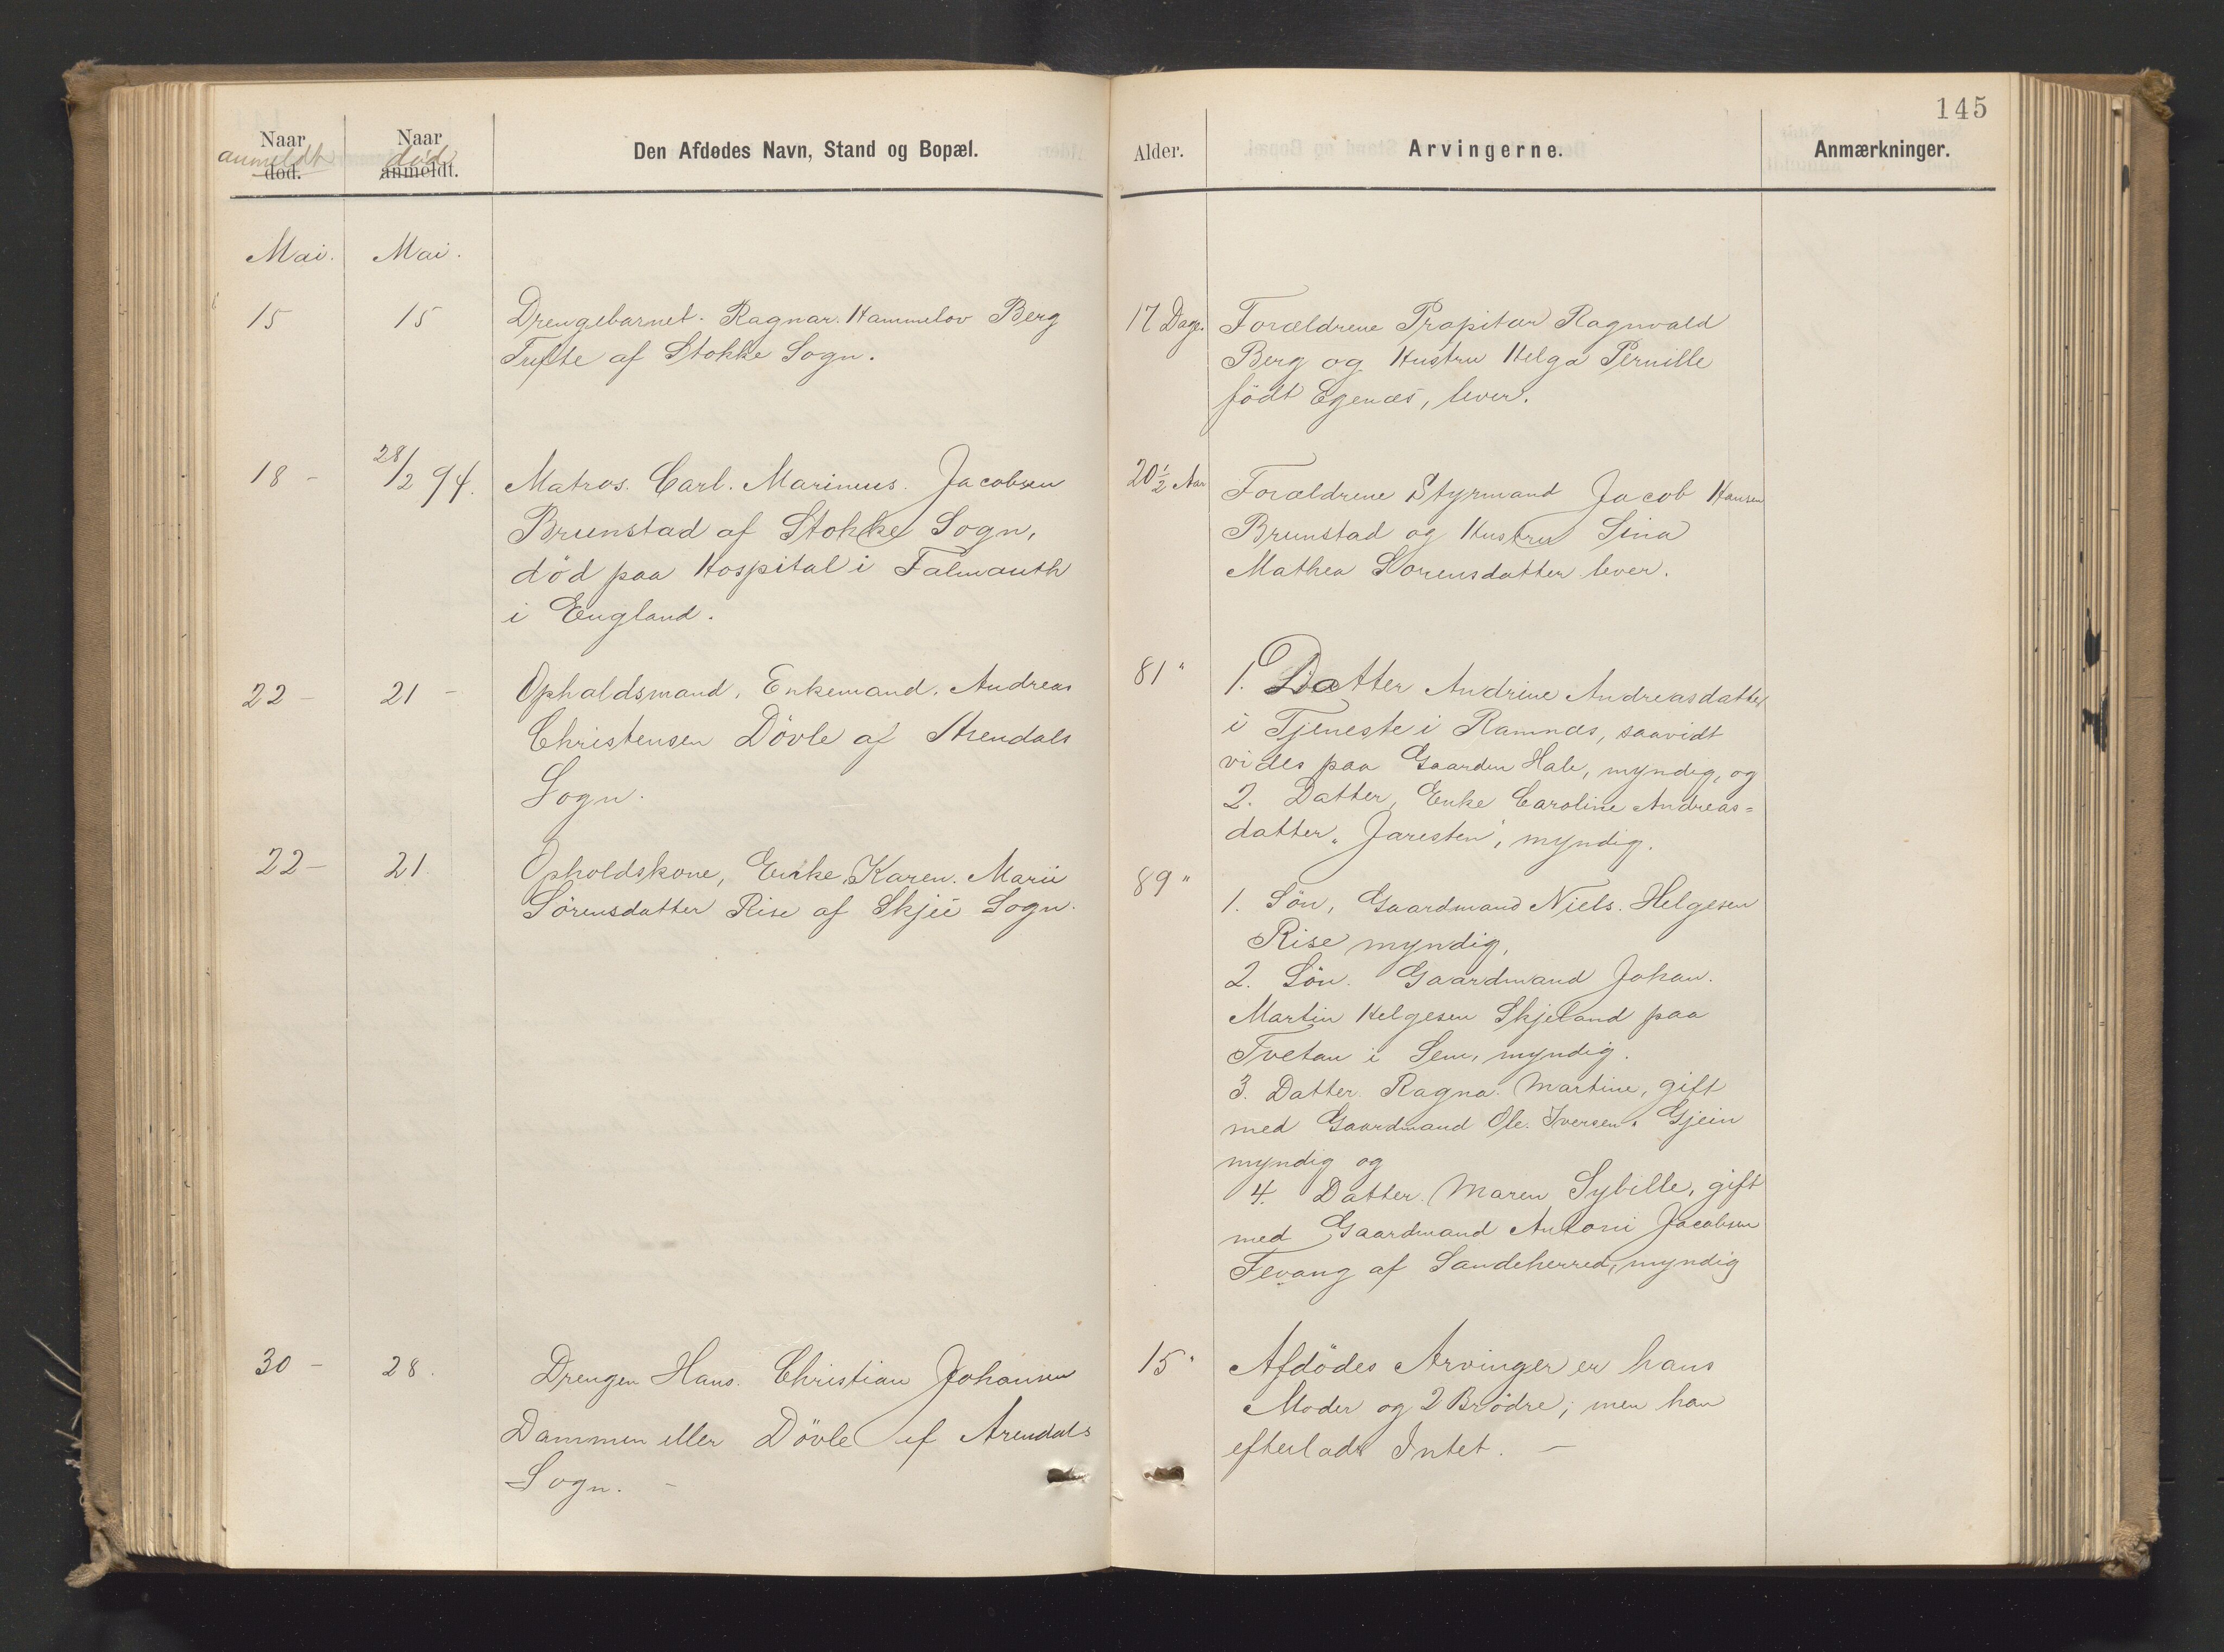 145
Naar anmeldt død.
Naar død anmeldt.
Den Afdødes Navn, Stand og Bopæl.
Alder.
Arvingerne.
Anmærkninger.
Mai. Mai.
15 15 Drengebarnet. Ragnar. Hammelov Berg
Tufte af Stokke Sogn.
17 Dage. Forældrene Propitær Ragnvald
Berg og Hustru Helga Pernille
født Egenæs, lever.
18 - 28/2 94. Matros. Carl. Marinius. Jacobsen
Brunstad af Stokke Sogn,
død paa Hospital i Falmauth
i England.
20 1/2 Aar Forældrene Styrmand Jacob Hansen
Brunstad og Hustru Sina
Mathea Sorensdatter lever.
22 - 21 - Opholdsmand, Enkemand. Andreas
Christensen Døvle af Arendals
Sogn.
81 " 1. Datter Andrine Andreasdatter
i Tjeneste i Ramnæs, saavidt
vides paa Gaarden Hale, myndig, og
2. Datter, Enke Caroline Andreas=
datter „Jaresten", myndig.
22 - 21 Opholdskone, Enke, Karen. Marie
Sörensdatter Rise af Skjee Sogn.
89 "
1. Sön, Gaardmand Niels. Helgesen
Rise myndig,
2. Sön. Gaardmand Johan.
Martin Helgesen Skjeland paa
Tvetan i Sem, myndig.
3. Datter. Ragna. Martine, gift
med Gaardmand Ole. Iversen. Gjein
myndig og
4. Datter. Maren Sybille, gift
med Gaardmand Antoni Jacobsen
Fevang af Sandeherred, myndig
30 - 28. Drengen Hans. Christian Johansen
Dammen eller Døvle af Arendals
Sogn. -
15 " Afdödes Arvinger er hans
Moder og 2 Brødre; men han
efterlader Intet. —